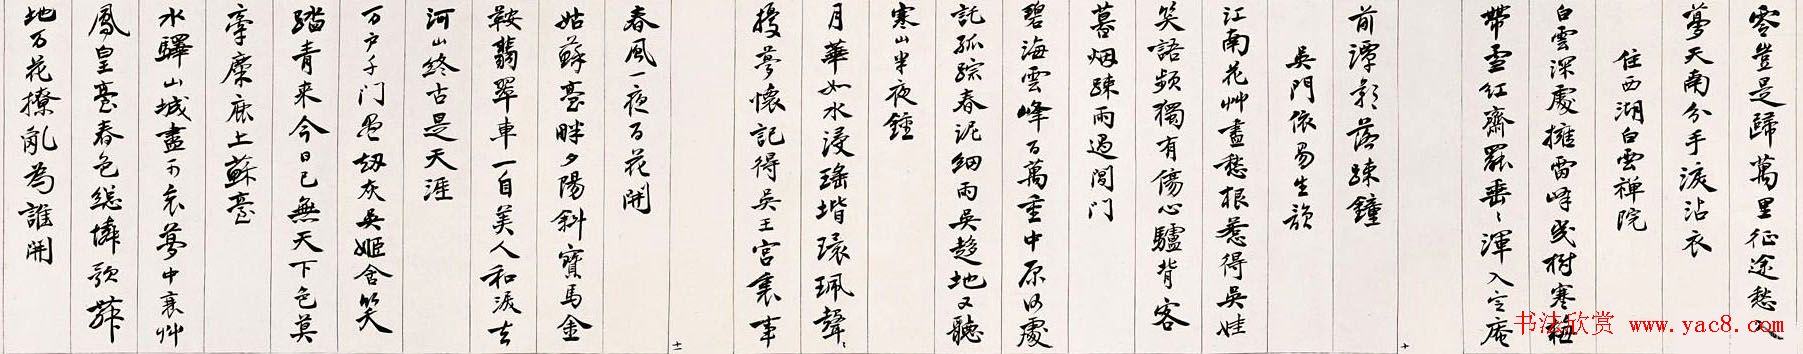 零豈是歸萬里征途愁入
夢天南分手淚沾衣
住西湖白雲禅院
白雲深處擁雷峰幾樹寒梅
帶雪紅齋罷垂〻渾入定庵
前潭影落疎鐘
十
吳門依易生韻
江南花艸盡愁根惹得吳娃
笑語頻獨有傷心驢背客
暮烟疎雨過閶门
碧海雲峰百萬重中原何處
託孤踪春泥細雨吳趨地又聽
寒山半夜鍾
月華如水浸瑤堦環珮聲〻
擾夢懷記得吳王宮裏事
十一
春風一夜百花開
姑蘇臺畔夕陽斜寶馬金
鞍翡翠車一自美人和淚去
河山終古是天涯
万户千门盡劫灰吳姬含笑
踏青来今日已無天下色莫
牽麋鹿上蘇臺
水驛山城盡可哀夢中衰艸
鳳皇臺春色總憐歌舞
地万花撩亂為誰開
书法欣赏 www.yac8.com